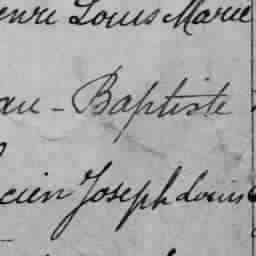 enri Louis Marie
au-Baptiste
cien Joseph Louis